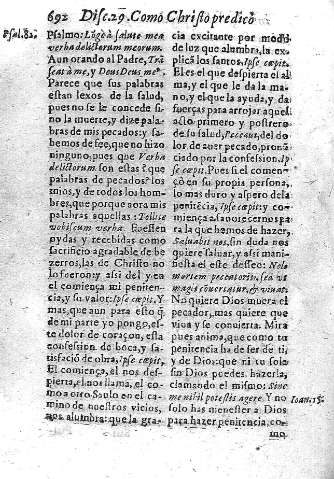 692 Disc. 29. Como Christo predicò
Psal. 82.
Psalmo: Longè à salute mea
verba delictorum meorum.
Aun orando al Padre,
à me, y Deus Deus me⁹.
Parece que sus palabras
estan lexos de la salud,
pues no se le concede si-
no la muerte, y dize pala-
bras de mis pecados, y sa-
bemos de fee, que no hizo
ninguno, pues que Verba
delictorum son estas? que
palabras de pecados? los
mios, y de todos los hom-
bres, que porque aora mis
palabras aquellas: Tollite
vobiscum verba fuessen
oydas y recebidas como
sacrificio agradable de be
zerros, las de Christo no
lo fueron; assi del y en
el comiença mi peniten-
cia, y su valor: Ipse cœpit. Y
mas, que aun para esto q̃
de mi parte yo pongo, es-
te dolor de coraçon, esta
confession de boca, y sa-
tisfació de obra, Ipse cœpit,
El comiença, el nos des-
pierta, el nos llama, el co-
mo a otro Saulo en el ca-
mino de nuestros vicios,
nos alumbra: que la gra-
cia excitante por modo
de luz que alumbra, la ex-
plicã los santos. Ipse cœpit.
El es el que despierta el al
ma, y el que le da la ma-
no, y el que la ayuda, y da
fuerças para arrojar aquel
acto primero y postrero
de su salud, Peccaui, del do
lor de auer pecado, pronũ
ciado por la confession. Ip
se cœpit. Pues si el comen-
çò en su propia persona,
lo mas duro y aspero de la
penitẽcia, Ipse cœpit; y co
miença a fauorecernos pa
ra la que hemos de hazer,
Saluabit nos, sin duda nos
quiere saluar, y assi mani-
fiesta el este desseo: Nolo
mortem peccatoris, sed vt
magis conuertatur, & viuat.
No quiere Dios muera el
pecador, mas quiere que
viua y se conuierta. Mira
pues anima, que como tu
penitencia ha de ser de ti,
y de Dios: que ni tu solo
sin Dios puedes hazerla,
clamando el mismo: Sine
me nihil potestis agere. Y no
Ioan. 15.
solo has menester a Dios
para hazer penitencia, co-
mo